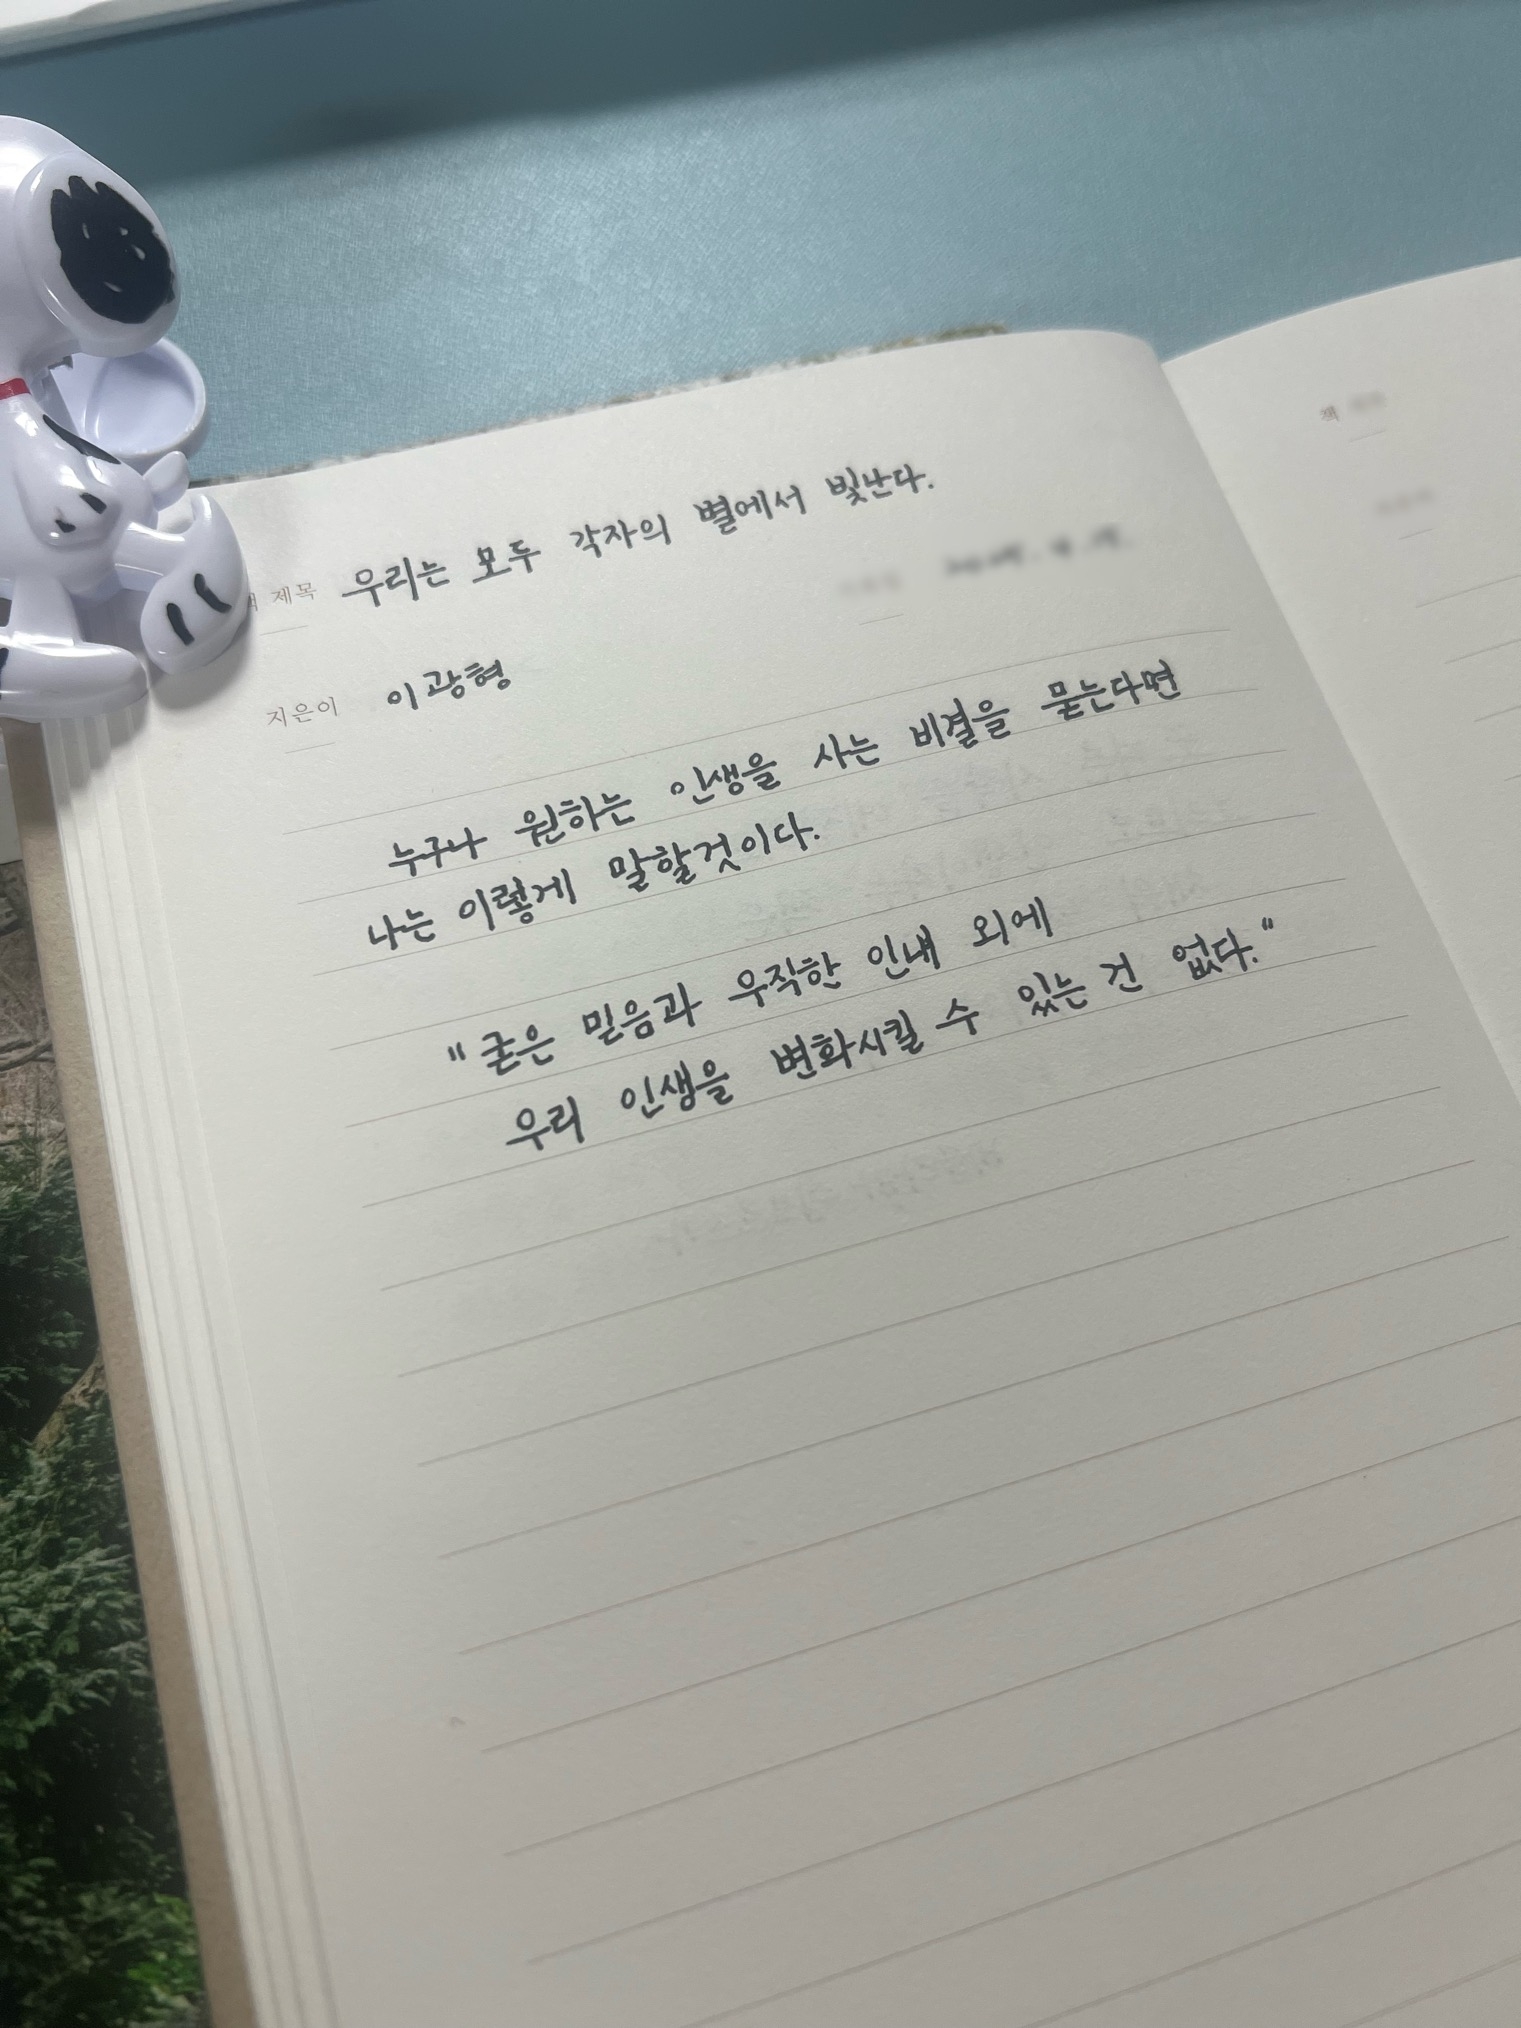 책 제목 우리는 모두 각자의 별에서 빛난다.
지은이 이광형
누구나 원하는 인생을 사는 비결을 묻는다면
나는 이렇게 말할것이다.
"굳은 믿음과 우직한 인내 외에
우리 인생을 변화시킬 수 있는 건 없다."
책